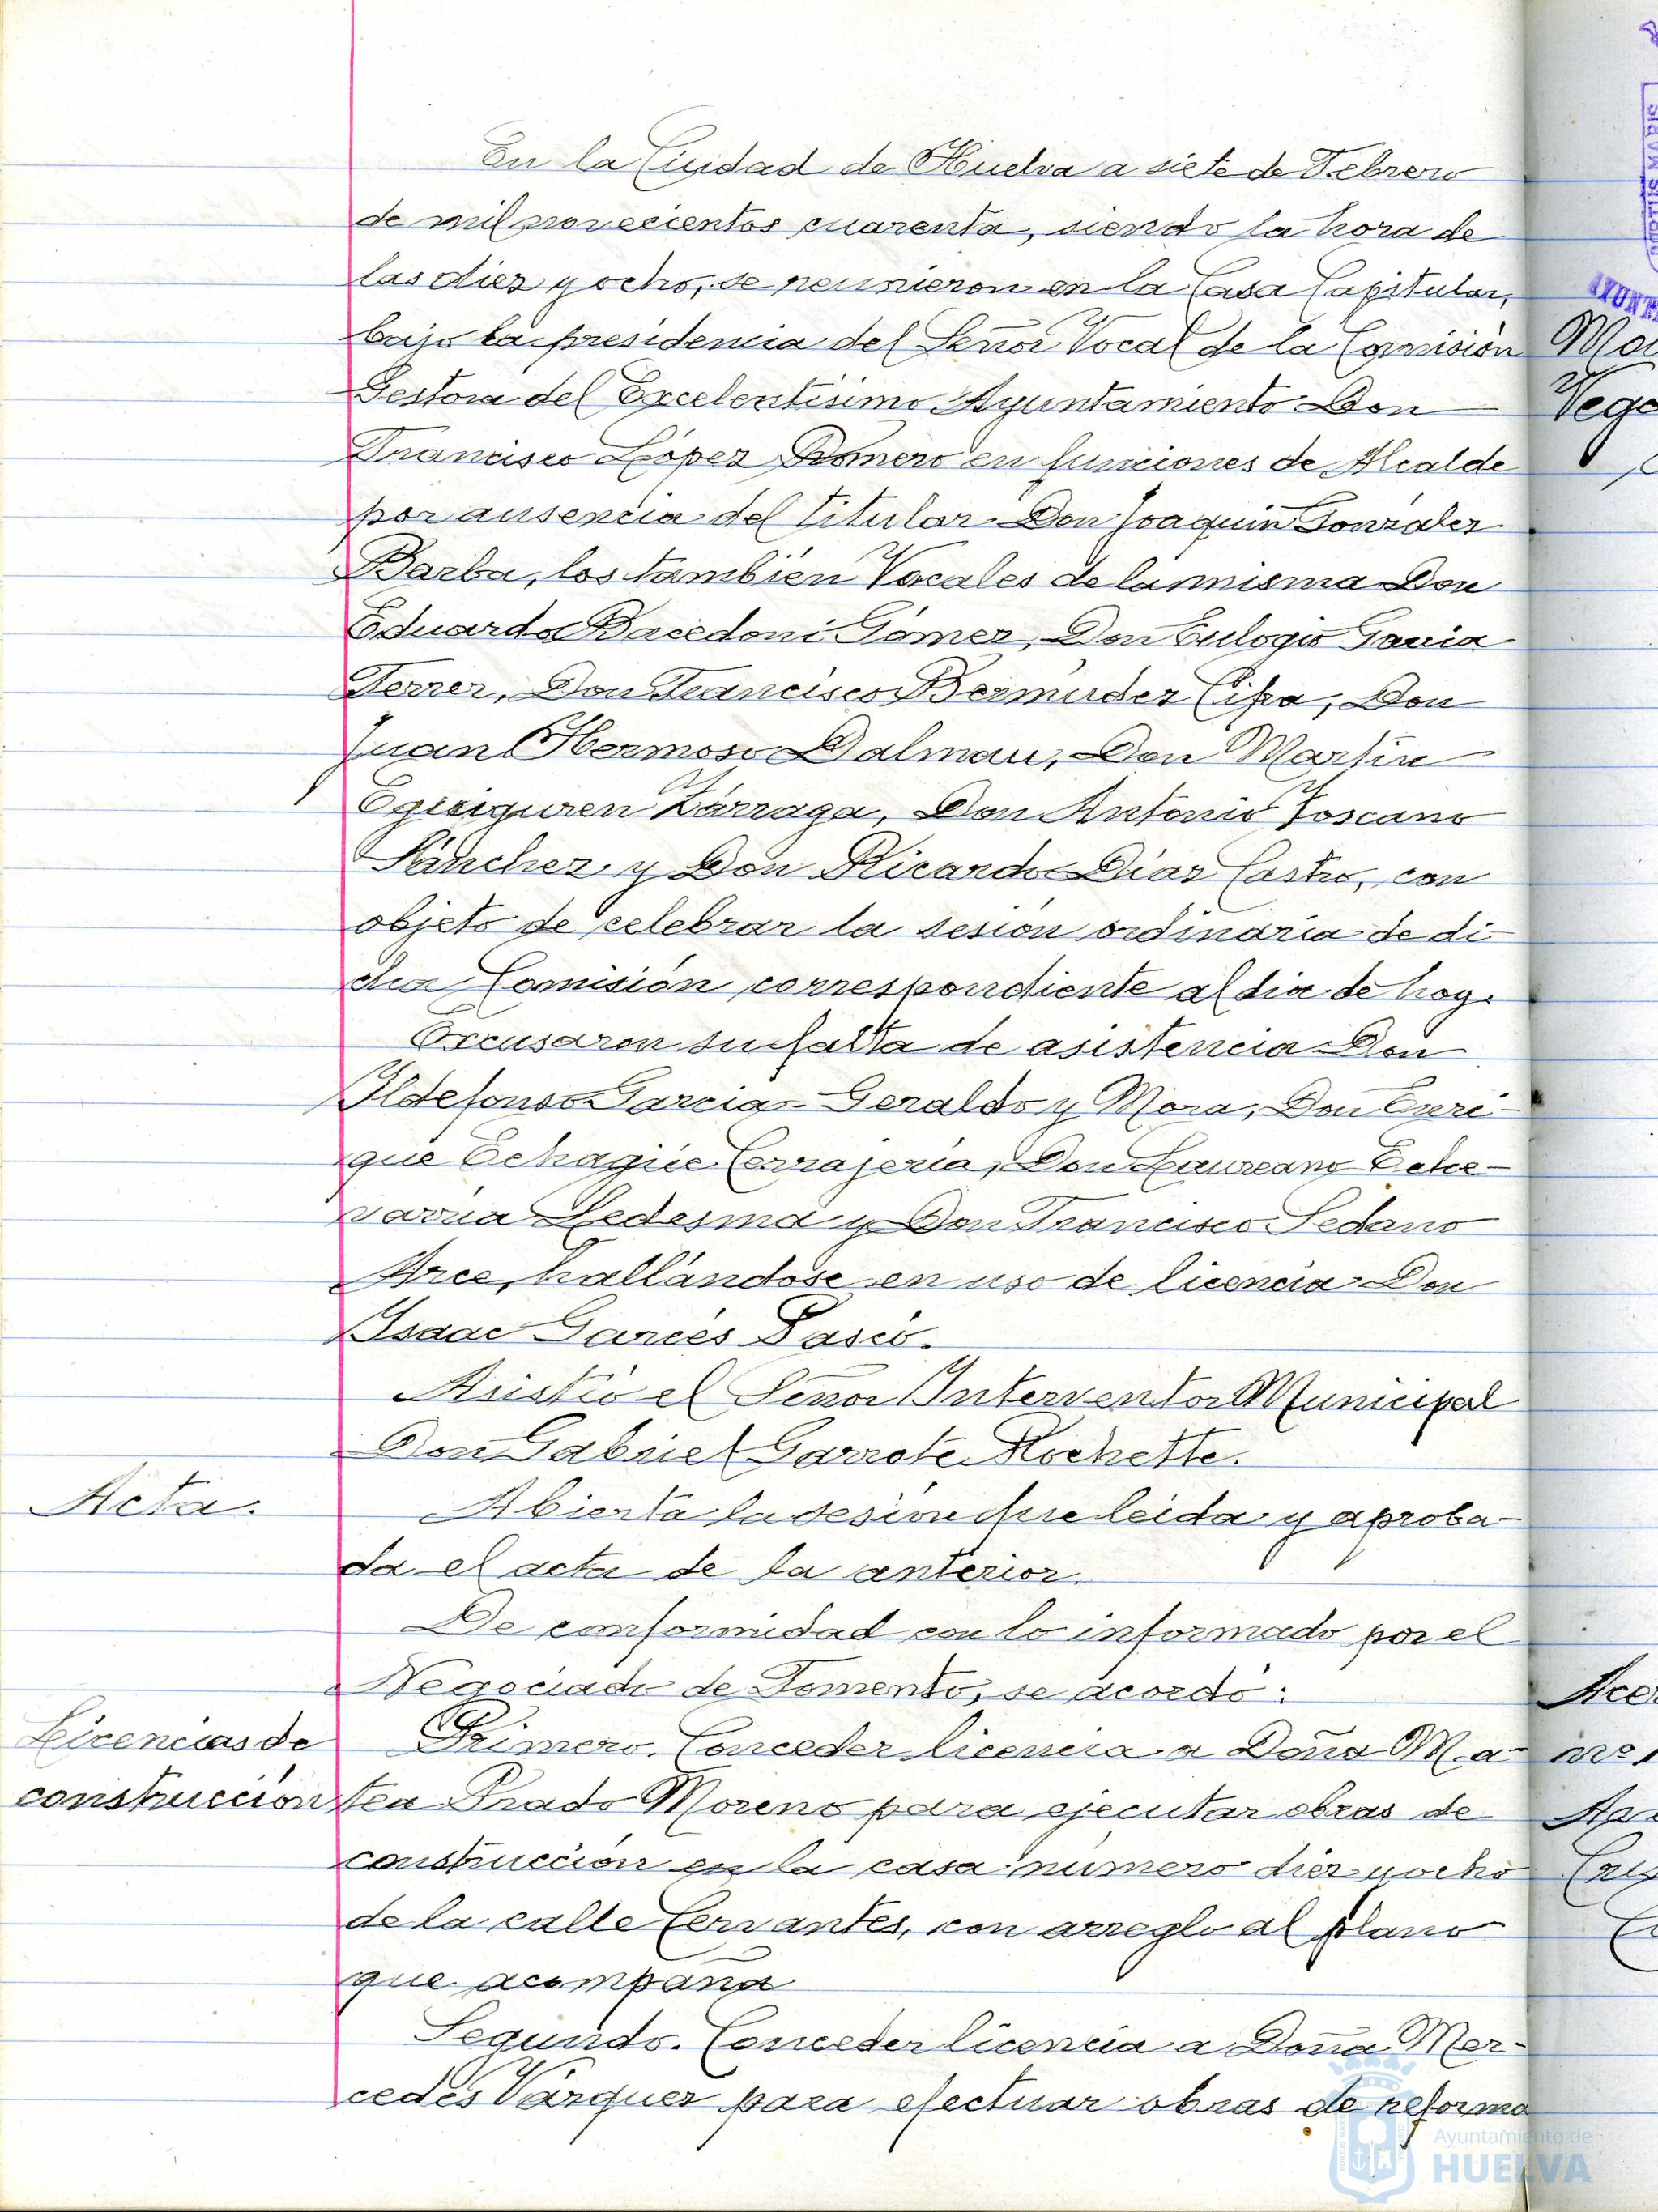 En la Ciudad de Huelva a siete de Febrero
de mil novecientos cuarenta, siendo la hora de
las diez y ocho, se reunieron en la Casa Capitular,
bajo la presidencia del Señor Vocal de la Comisión
Gestora del Excelentísimo Ayuntamiento Don
Francisco López Romero en funciones de Alcalde
por ausencia del titular Don Joaquin González
Barba, los también Vocales de la misma Don
Eduardo Bacedoni Gómez, Don Eulogio Gavia
Ferrer, Don Francisco Bermúdez Cipa, Don
Juan Hermoso Dalmau, Don Martín
Eguiguren Zárraga, Don Antonio Toscano
Sánchez y Don Ricardo Díaz Castro, con
objeto de celebrar la sesión ordinaria de di-
cha Comisión correspondiente al dia de hoy.
Excusaron su falta de asistencia Don
Ildefonso Garcia-Geraldo y Mora, Don Enri-
que Echagüe Cerrajería, Don Laureano Eche-
varria Ledesma y Don Francisco Sedano
Arce, hallándose en uso de licencia Don
Isaac Garcés Pasco.
Asistió el Señor Interventor Municipal
Don Gabriel Garrote Rochette.
Acta.
Abierta la sesión fue leida y aproba-
da el acta de la anterior.
De conformidad con lo informado por el
Negociado de Fomento, se acordó:
Licencias de
construcción
Primero. Conceder licencia a Doña Ma-
tea Prado Moreno para ejecutar obras de
construcción en la casa número diez y ocho
de la calle Cervantes, con arreglo al plano
que acompaña
Segundo. Conceder licencia a Doña Mer-
cedes Vázquez para efectuar obras de reforma
Ayuntamiento de
HUELVA